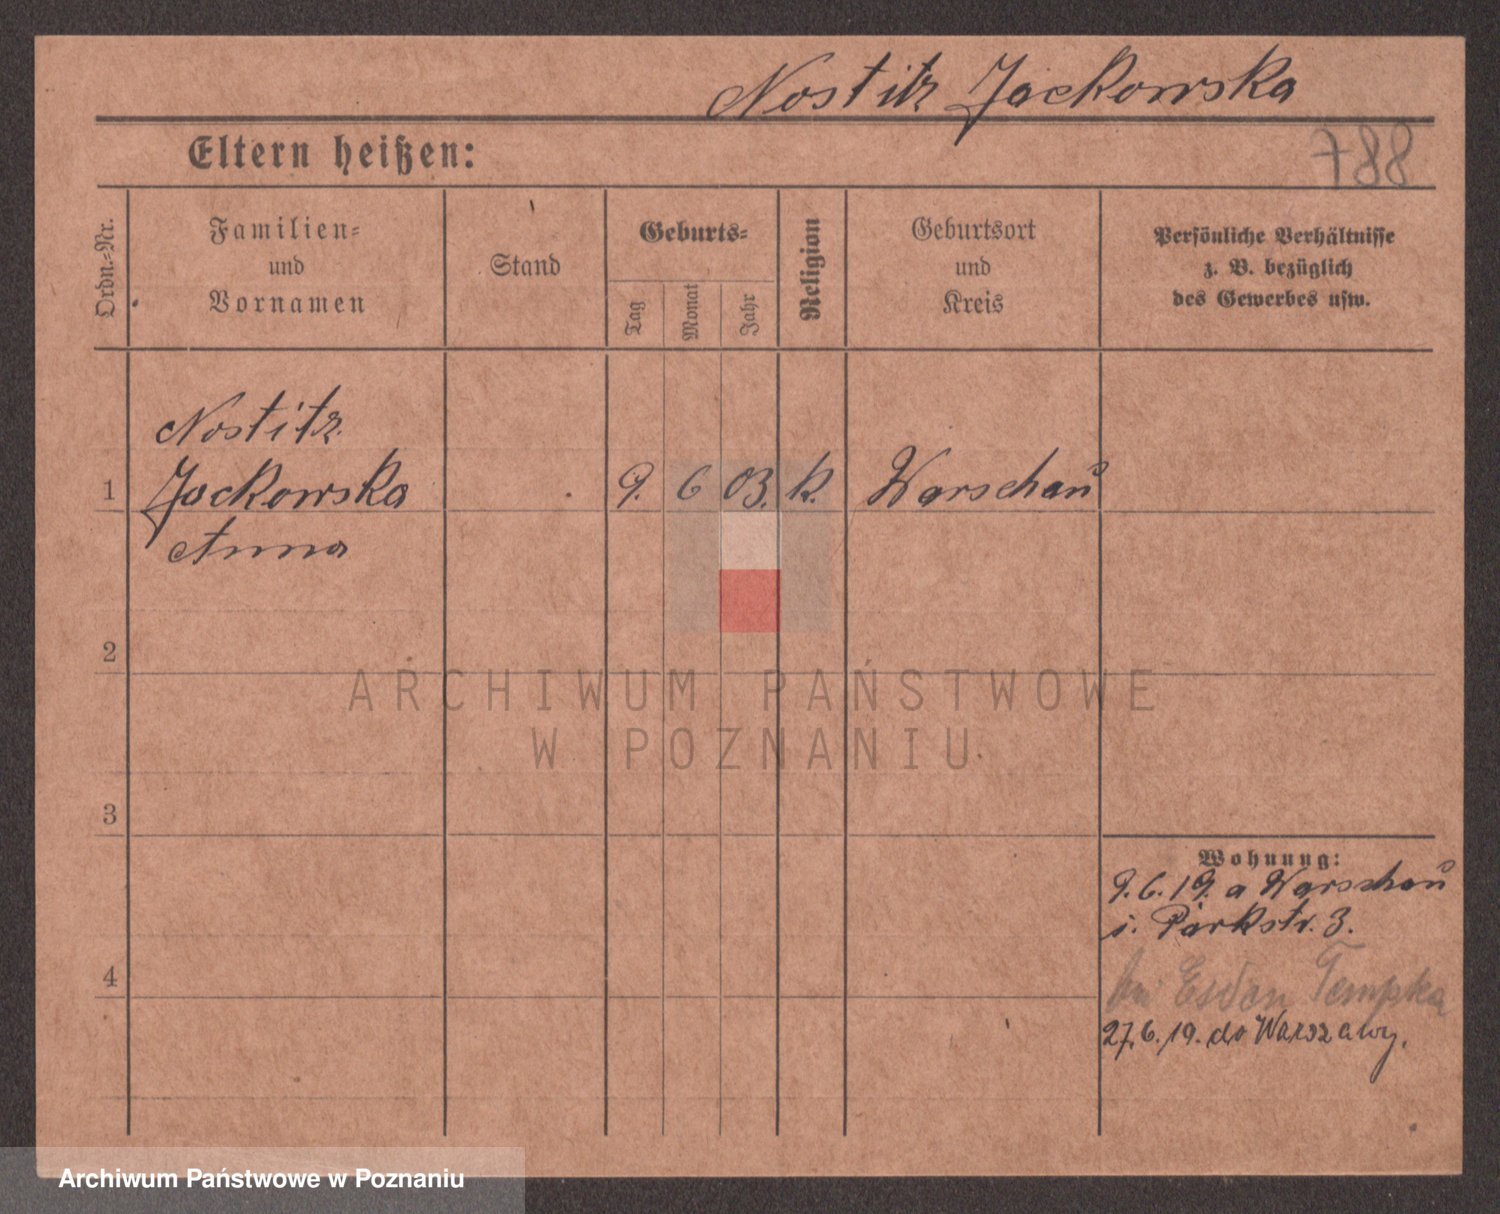 Nostitz Jackowska
Eltern heißen:
788
Ordn.-Nr.
Familien-
und
Vornamen
Stand
Geburts-
Tag
Monat
Jahr
Religion
Geburtsort
und
Kreis
Persönliche Verhältnisse
z. B. bezüglich
des Gewerbes usw.
Nostitz
1 Jackowska 9. 6 03. k. Warschau
Anna
2
3
4
Wohnung:
9.6.19. a Warschau
i. Parkstr. 3.
Tempska
27.6.19. do Warszawy.
ARCHIWUM PAŃSTWOWE
W POZNANIU
Archiwum Państwowe w Poznaniu